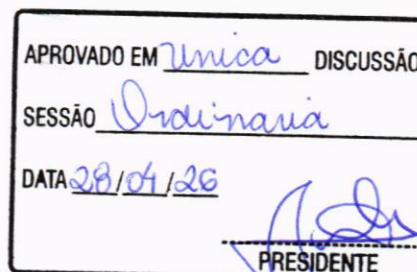 APROVADO EM Unica DISCUSSÃO
SESSÃO Ordinaria
DATA 28/04/26
PRESIDENTE